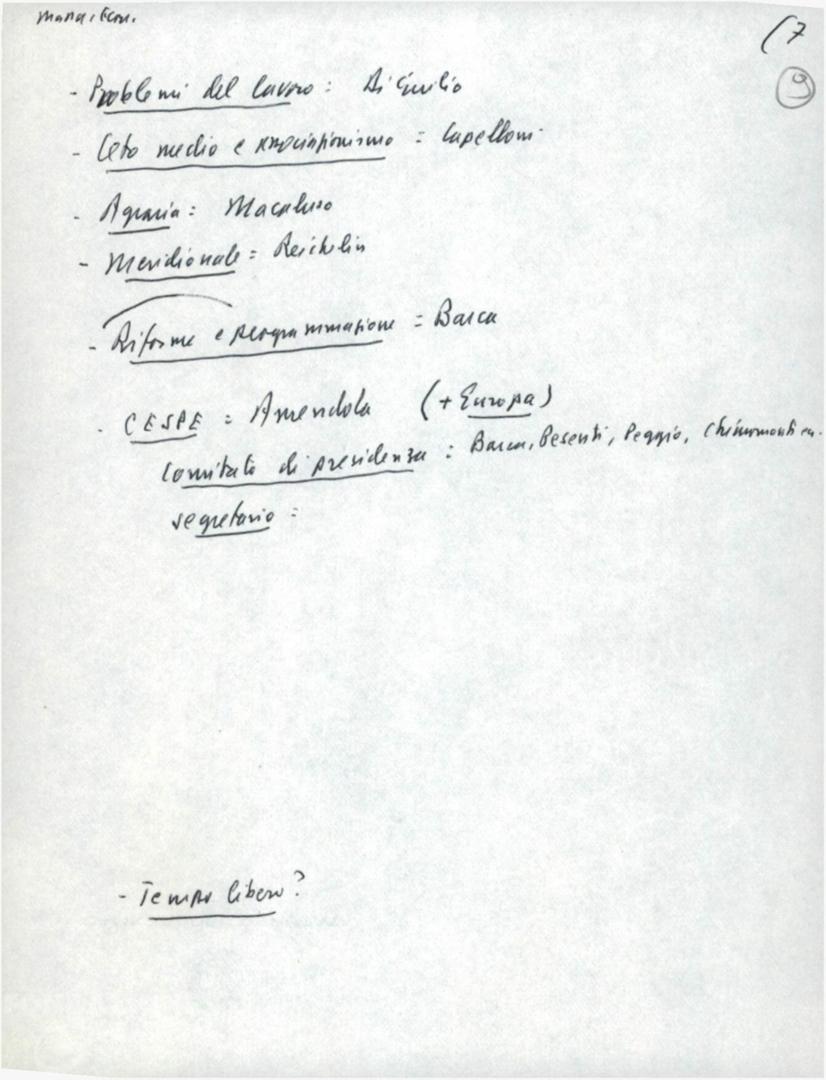 (7
9
- Problemi del lavoro: Di Giulio
- Ceto medio e associazionismo = Capelloni
- Agraria: Macaluso
- Meridionale = Reichlin
- Riforme e programmazione = Barca
- CESPE = Amendola (+ Europa)
Comitato di presidenza: Barca, Pesenti, Peggio, Chiaromonte
segretario:
- Tempo libero?